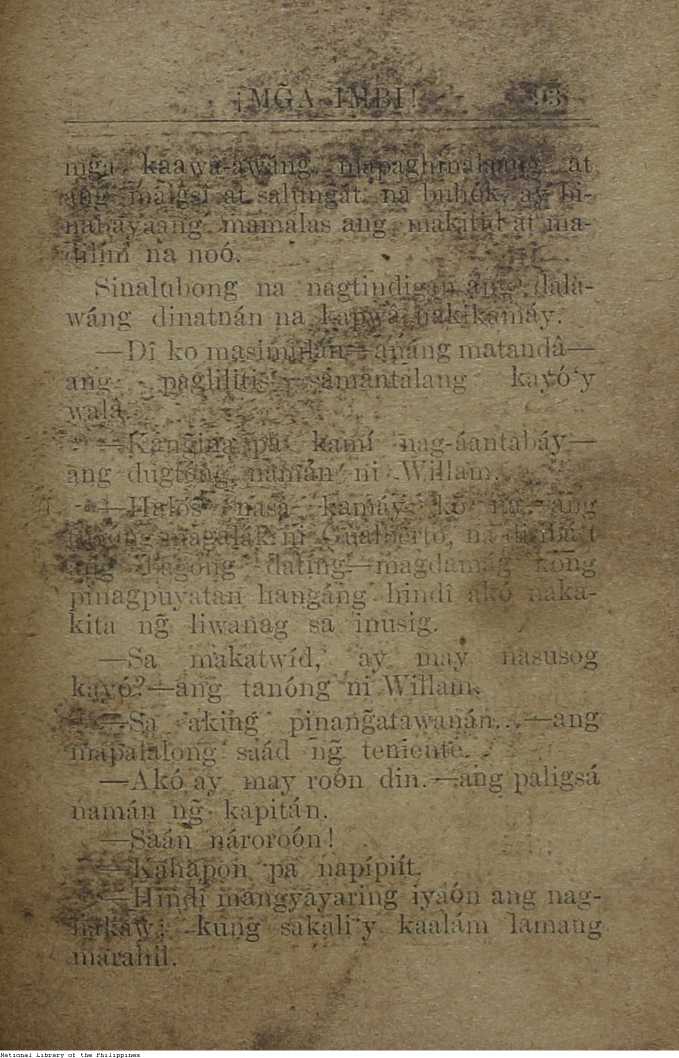 ¡MG̃A IMBI! 93
mg̃a kaawa-awang mapaghimaláang at
ang malgsí at salung̃át na buhók, ay bi-
nabayaang mamalas ang makitid at ma-
dilim na noó.
Sinalubong na nagtindigan ang dala-
wáng dinatnán na kapwâ nakikamáy.
—Dî ko masimulán—anáng matandâ—
ang paglilitis sámantalang kayó'y
walâ.
—Kang̃ina pa kamí nag-áantabáy—
ang dugtóng namán ni Willam.
—Halos nasa kamáy ko na,—ang
ni Gualberto, na
ang bagong dating—magdamág kong
pinagpuyatan hangáng hindî akó naka-
kita ng̃ liwanag sa inusig.
—Sa makatwíd, ay may nasusog
kayó?—ang tanóng ni Willam.
—Sa aking pinang̃atawanán...—ang
mapalalong saád ng̃ teniente.
—Akó ay may roón din.—ang paligsá
namán ng̃ kapitán.
—Saán nároroón!
—Kahapon pa napípiít.
—Hindî mangyayaring iyaón ang nag-
nakaw; kung sakali'y kaalám lamang
marahil.
National Library of the Philippines